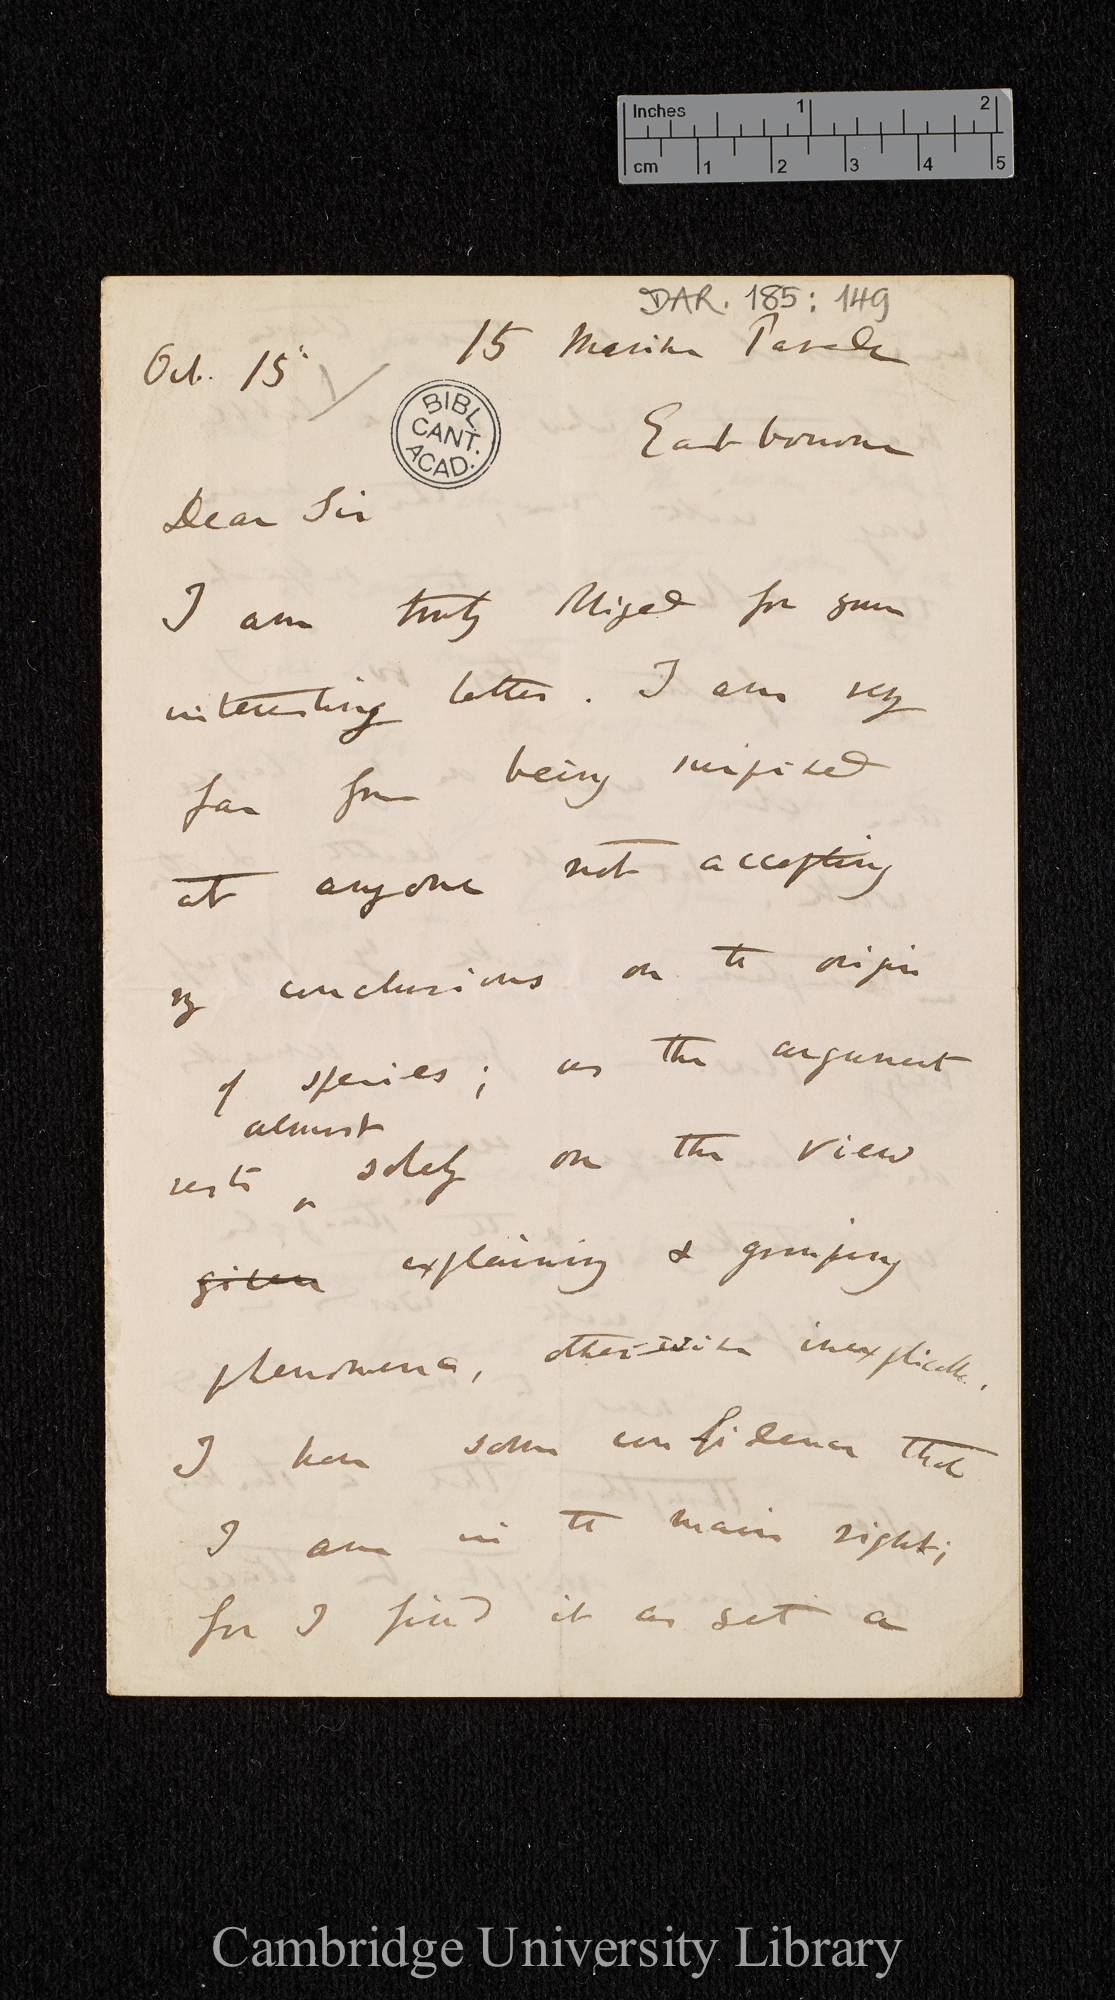 Inches 1 2
cm 1 2 3 4 5
DAR. 185: 149
Oct. 15
15 Marine Parade
Eastbourne
BIBL.
CANT.
ACAD.
Dear Sir
I am truly obliged for your
interesting letter. I am very
far from being surprised
at anyone not accepting
my conclusions on the origin
of species; as the argument
almost
rests ^ solely on the view
given explaining & grouping
phenomena, otherwise inexplicable.
I have some confidence that
I am in the main right;
for I find it as yet a
Cambridge University Library